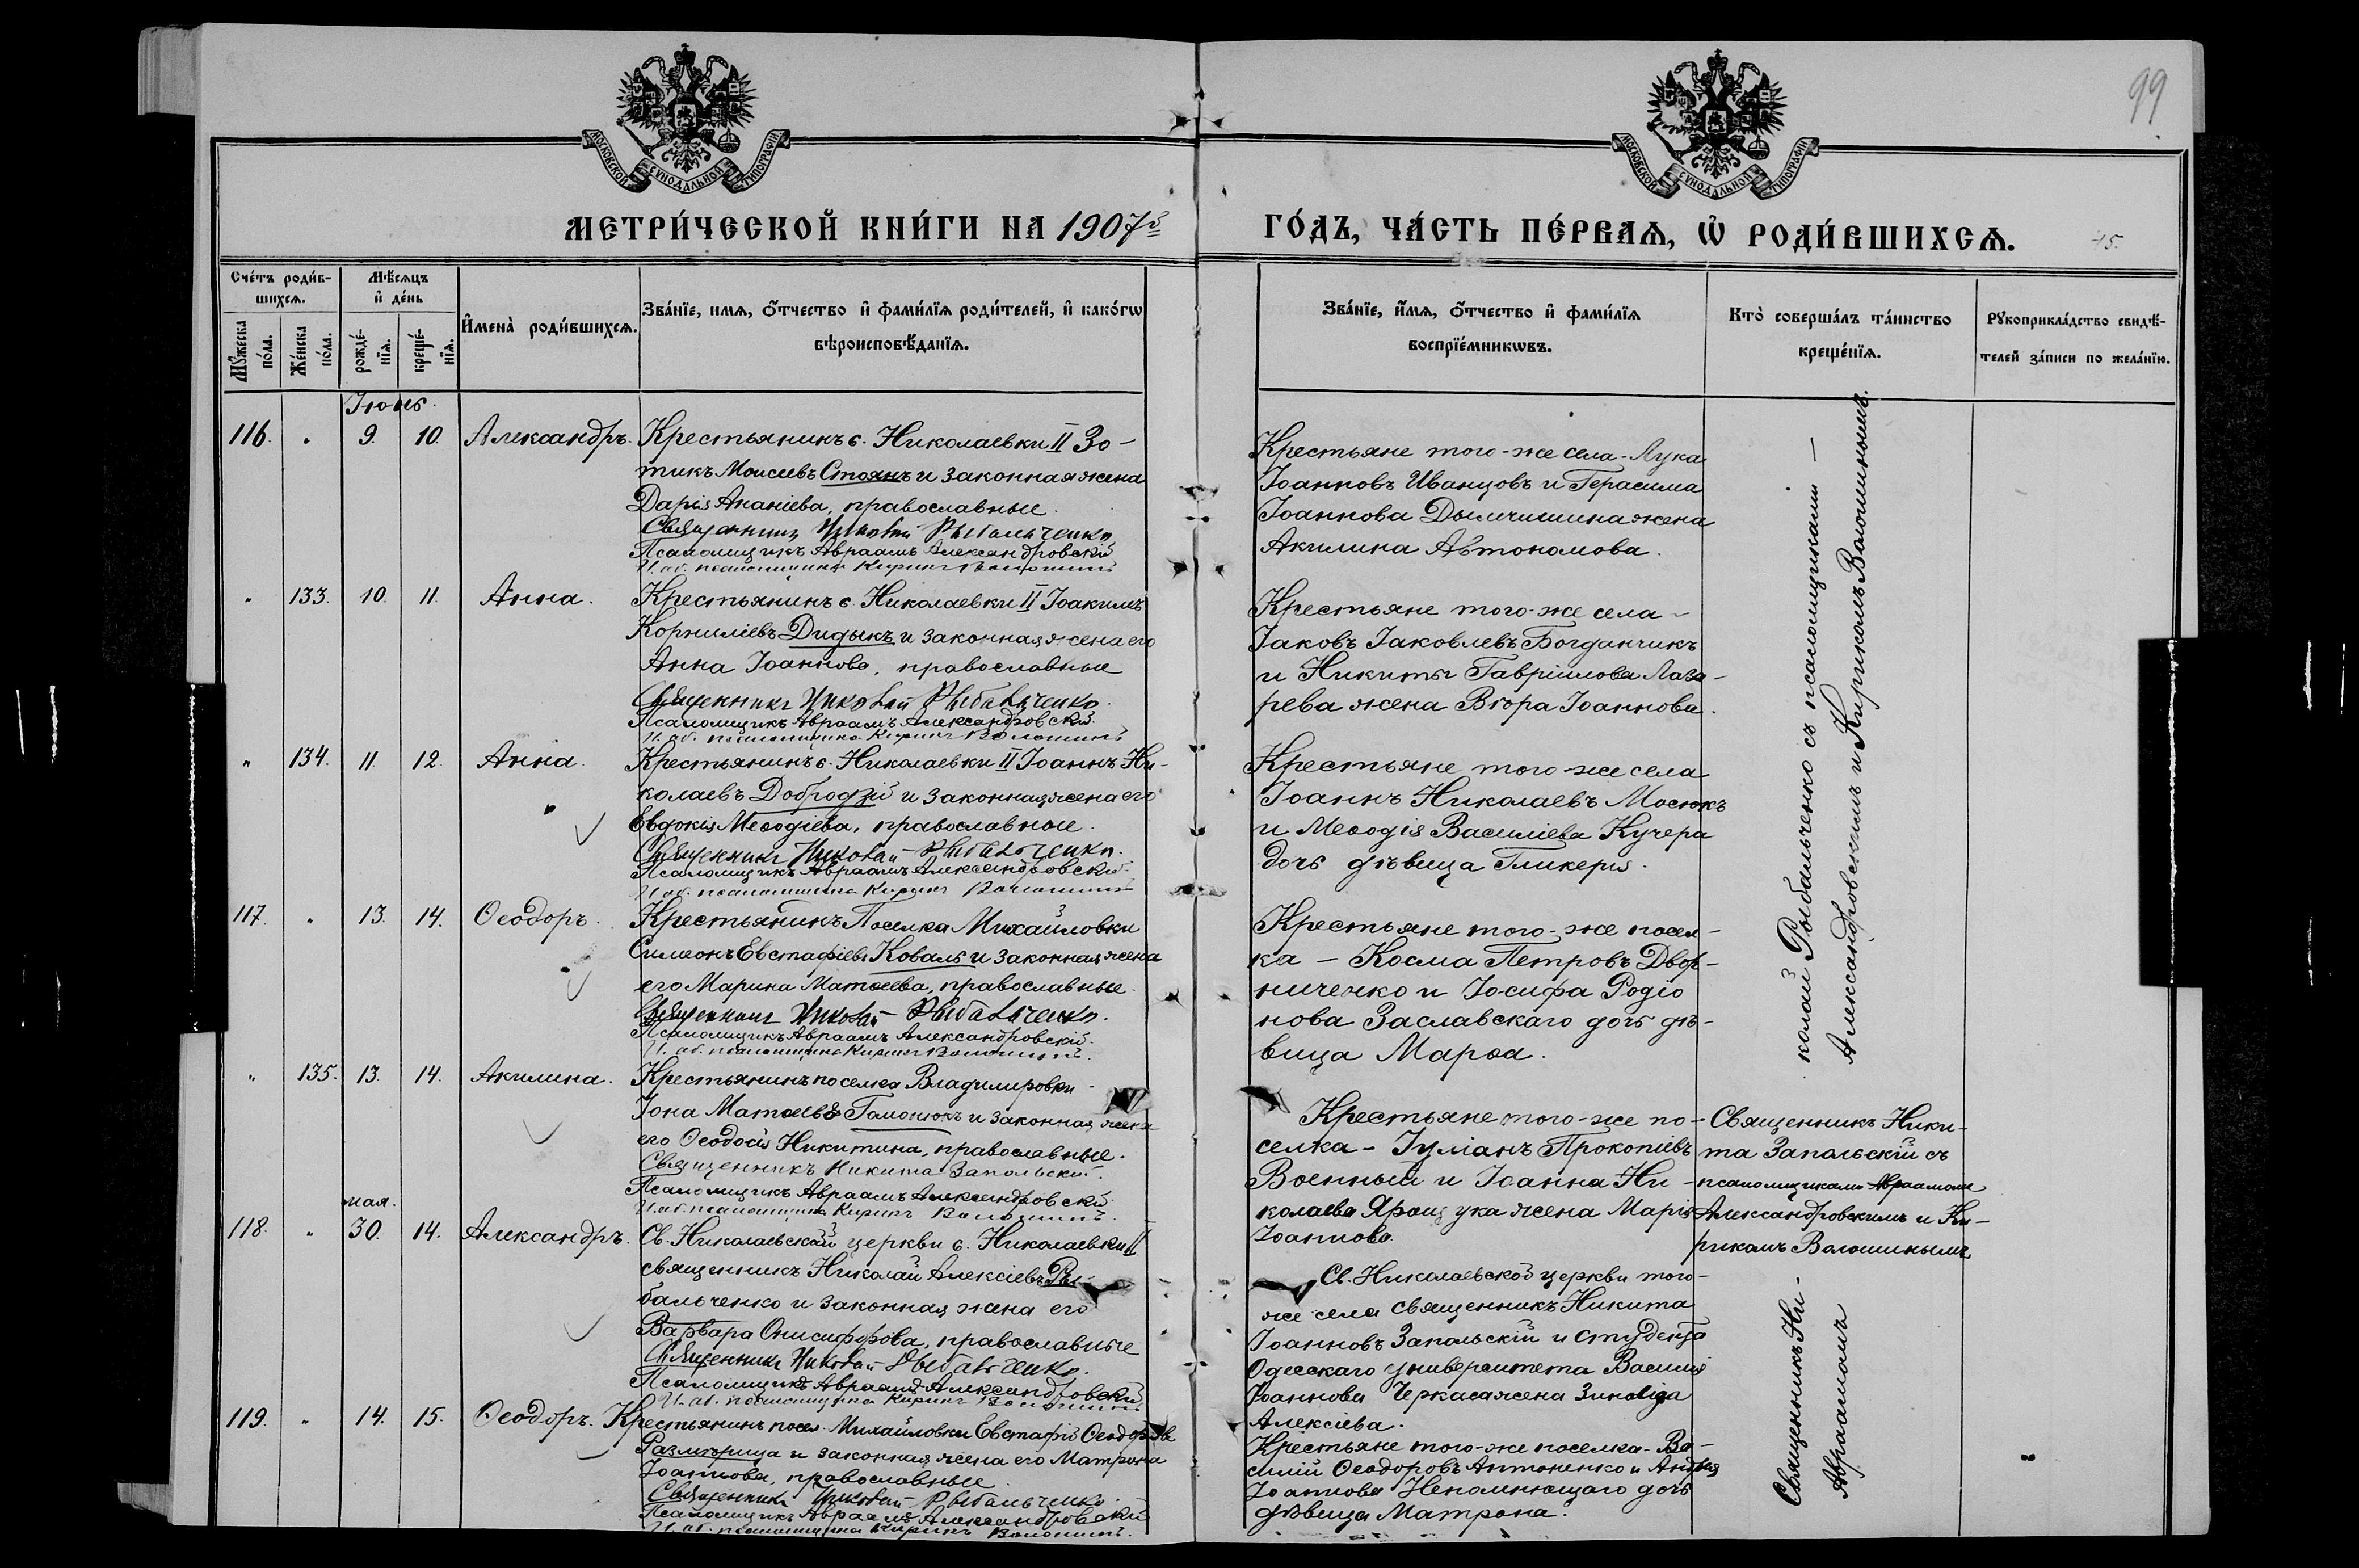 99
МОСКОВСКОЙ СУНОДАЛЬНОЙ ТИПОГРАФІИ
МОСКОВСКОЙ СУНОДАЛЬНОЙ ТИПОГРАФІИ
МЕТРИ́ЧЕСКОЙ КНИ́ГИ НА 1907й
ГО́ДЪ, ЧА́СТЬ ПЕ́РВАѦ, Ѡ РОДИ́ВШИХСѦ.
45.
Сче́тъ роди́в-
шихсѧ.
Мꙋжеска по́ла.
Же́нска по́ла.
Мѣ́сѧцъ
и҆ де́нь
рожде́-
нїѧ.
креще́-
нїѧ.
И҆мена̀ роди́вшихсѧ.
Зва́нїе, имѧ, ѻ҆́тчество и҆ фами́лїѧ роди́телей, и҆ како́гѡ
вѣроисповѣ́данїѧ.
Зва́нїе, и҆́мѧ, ѻ҆́тчество и҆ фами́лїѧ
воспрїе́мникѡвъ.
Кто̀ соверша́лъ та́инство
креще́нїѧ.
Рꙋкоприкла́дство свидѣ́-
телей за́писи по жела́нїю.
Іюнь.
116. " 9. 10. Александръ.
Крестьянинъ с. Николаевки II Зо-
тикъ Моисеевъ Стоянъ и законная жена
Дарія Ананіева, православные.
Священникъ Николай Рыбальченко
Псаломщикъ Авраамъ Александровскій
И. об. псаломщика Кирикъ Волошинъ
Крестьяне того-же села - Лука
Іоанновъ Иванцовъ и Герасима
Іоаннова Дымчишина жена
Акилина Автономова.
" 133. 10. 11. Анна.
Крестьянинъ с. Николаевки II Іоакимъ
Корниліевъ Дидыкъ и законная жена его
Анна Іоаннова, православные
Священникъ Николай Рыбальченко.
Псаломщикъ Авраамъ Александровскій.
И. об. псаломщика Кирикъ Волошинъ
Крестьяне того-же села -
Іаковъ Іаковлевъ Богданчикъ
и Никиты Гавріилова Лаза-
рева жена Вѣра Іоаннова.
" 134. 11. 12. Анна.
Крестьянинъ с. Николаевки II Іоаннъ Ни-
колаевъ Доброодзій и законная жена его
Евдокія Меѳодіева, православные.
Священникъ Николай Рыбальченко.
Псаломщикъ Авраамъ Александровскій.
И об. псаломщика Кирикъ Волошинъ
Крестьяне того-же села
Іоаннъ Николаевъ Мосюкъ
и Меѳодія Василіева Кучера
дочь дѣвица Гликерія.
117. " 13. 14. Ѳеодоръ.
Крестьянинъ Поселка Михайловки
Симеонъ Евстафіевъ Коваль и законная жена
его Марина Матѳеева, православные.
Священникъ Николай Рыбальченко.
Псаломщикъ Авраамъ Александровскій.
И. об. псаломщика Кирикъ Волошинъ.
Крестьяне того-же посел-
ка - Косма Петровъ Двор-
ниченко и Іосифа Родіо
нова Заславскаго дочь дѣ-
вица Марѳа.
колай Рыбальченко съ псаломщиками -
Александровскимъ и Кирикомъ Волошинымъ.
" 135. 13. 14. Акилина.
Крестьянинъ поселка Владимировки -
Іона Матѳеевъ Гамонюкъ и законная жена
его Ѳеодосія Никитина, православные.
Священникъ Никита Запольскій.
Псаломщикъ Авраамъ Александровскій.
И. об. псаломщика Кирикъ Волошинъ.
Крестьяне того-же по-
селка - Іуліанъ Прокопіевъ
Военный и Іоанна Ни-
колаева Яроцука жена Марія
Іоаннова.
Священникъ Ники-
та Запальскій съ
псаломщиками Авраамомъ
Александровскимъ и Ки-
рикомъ Волошинымъ
мая.
118. " 30. 14. Александръ.
Св. Николаевской церкви с. Николаевки II
священникъ Николай Алексіевъ Ры-
бальченко и законная жена его
Варвара Онисифорова, православные
Священникъ Николай Рыбальченко.
Псаломщикъ Авраамъ Александровскій
И. об. псаломщика Кирикъ Волошинъ.
Св. Николаевской церкви того-
же села священникъ Никита
Іоанновъ Запальскій и студента
Одесскаго университета Василія
Іоаннова Черкаса жена Зинаида
Алексіева.
119. " 14. 15. Ѳеодоръ.
Крестьянинъ посел. Михайловки Евстафій Ѳеодоровъ
Размѣрица и законная жена его Матрона
Іоаннова, православные.
Священникъ Николай Рыбальченко.
Псаломщикъ Авраамъ Александровскій
И. об. псаломщика Кирикъ Волошинъ.
Крестьяне того-же поселка - Ва-
силій Ѳеодоровъ Антоненко и Андрея
Іоаннова Непомнющаго дочь
дѣвица Матрона.
Священникъ Ни-
Авраамомъ